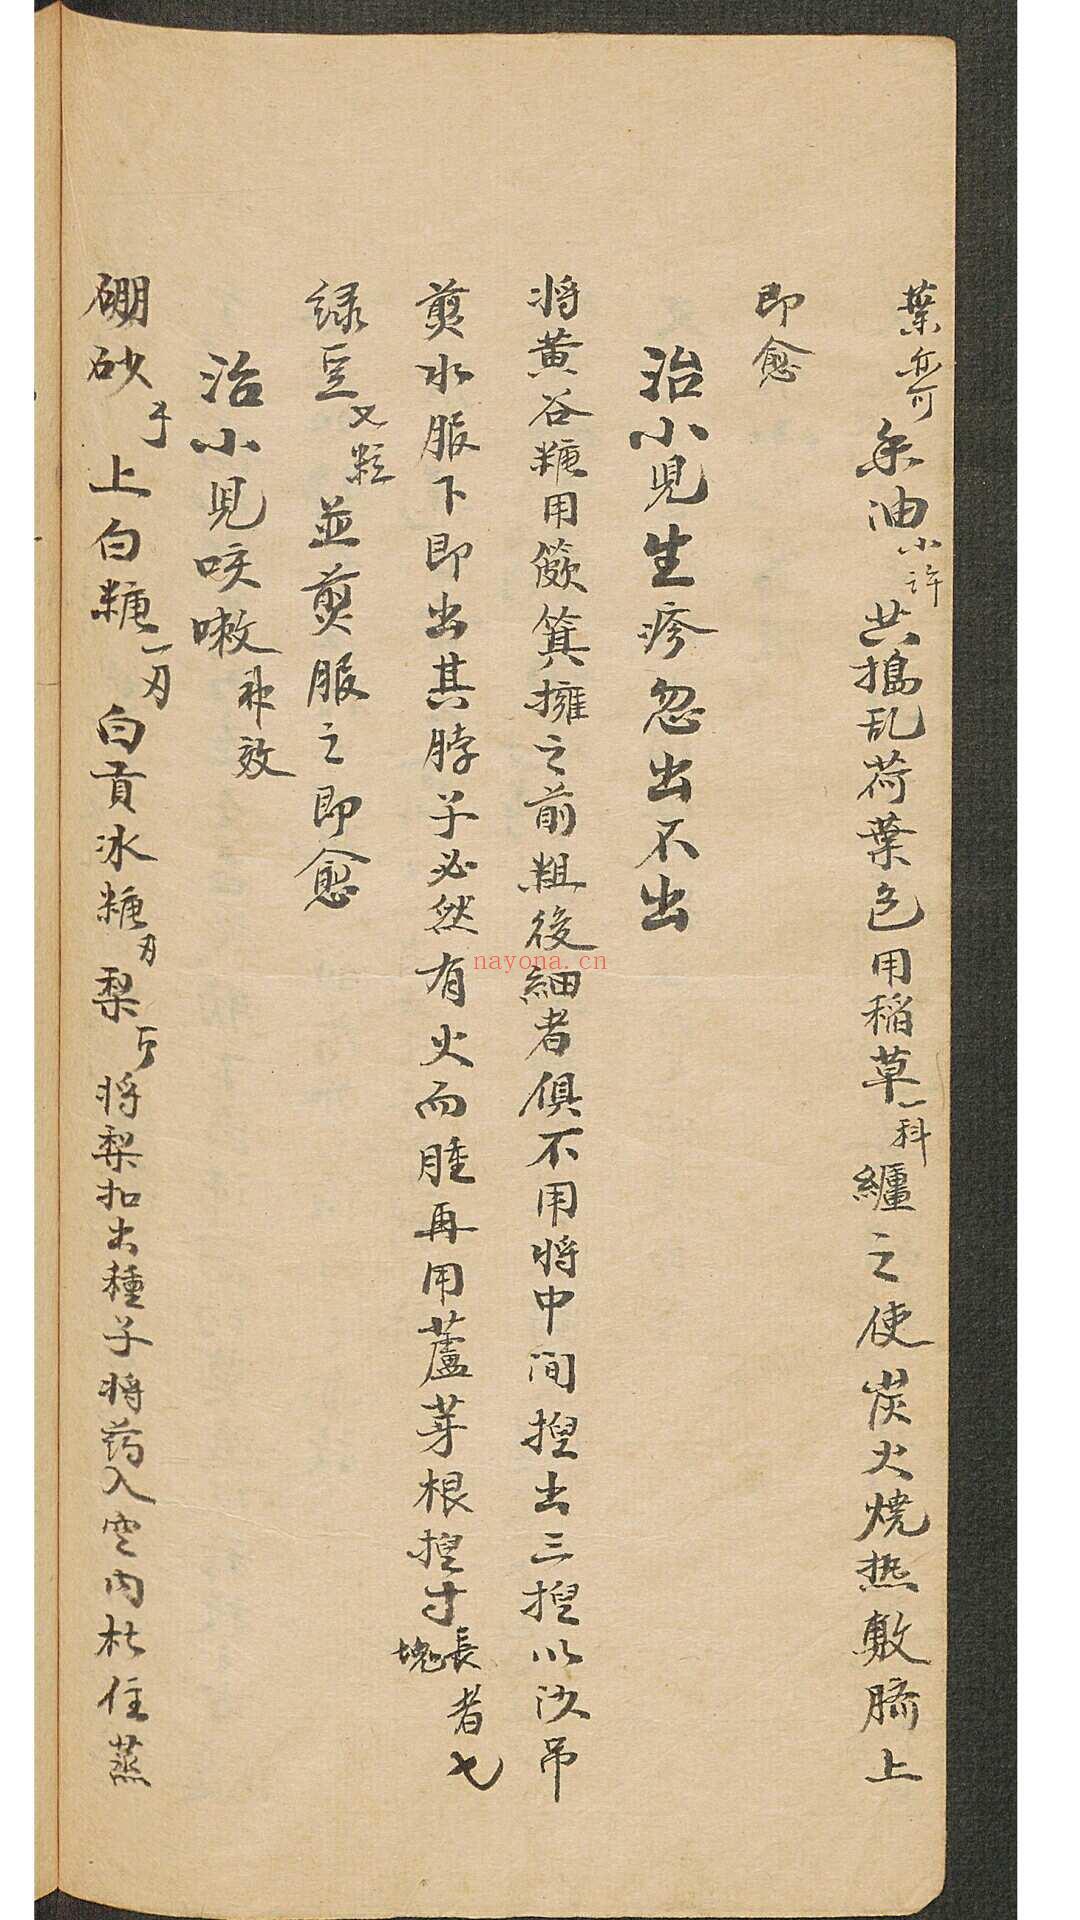 葉亦可 香油小許 共搗乱荷葉色用稲草一科纏之使炭火燒热敷臍上
即愈
治小児生疹忽出不出
将黄谷糠用簸箕擁之前粗後細者俱不用将中间揑出三揑以沙吊
煎水服下即出其脖子必然有火而腫再用蘆芽根揑寸長塊者七
緑豆七粒並煎服之即愈
治小児咳嗽神效
硼砂 上白糖一刃白貢冰糖刃梨将梨扣出種子将药入空内杜住蒸
nayona.cn